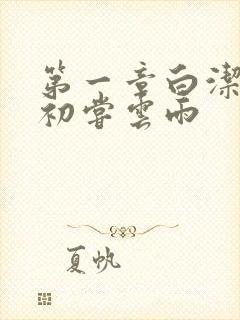 第一章白潔
初嘗雲雨
夏帆